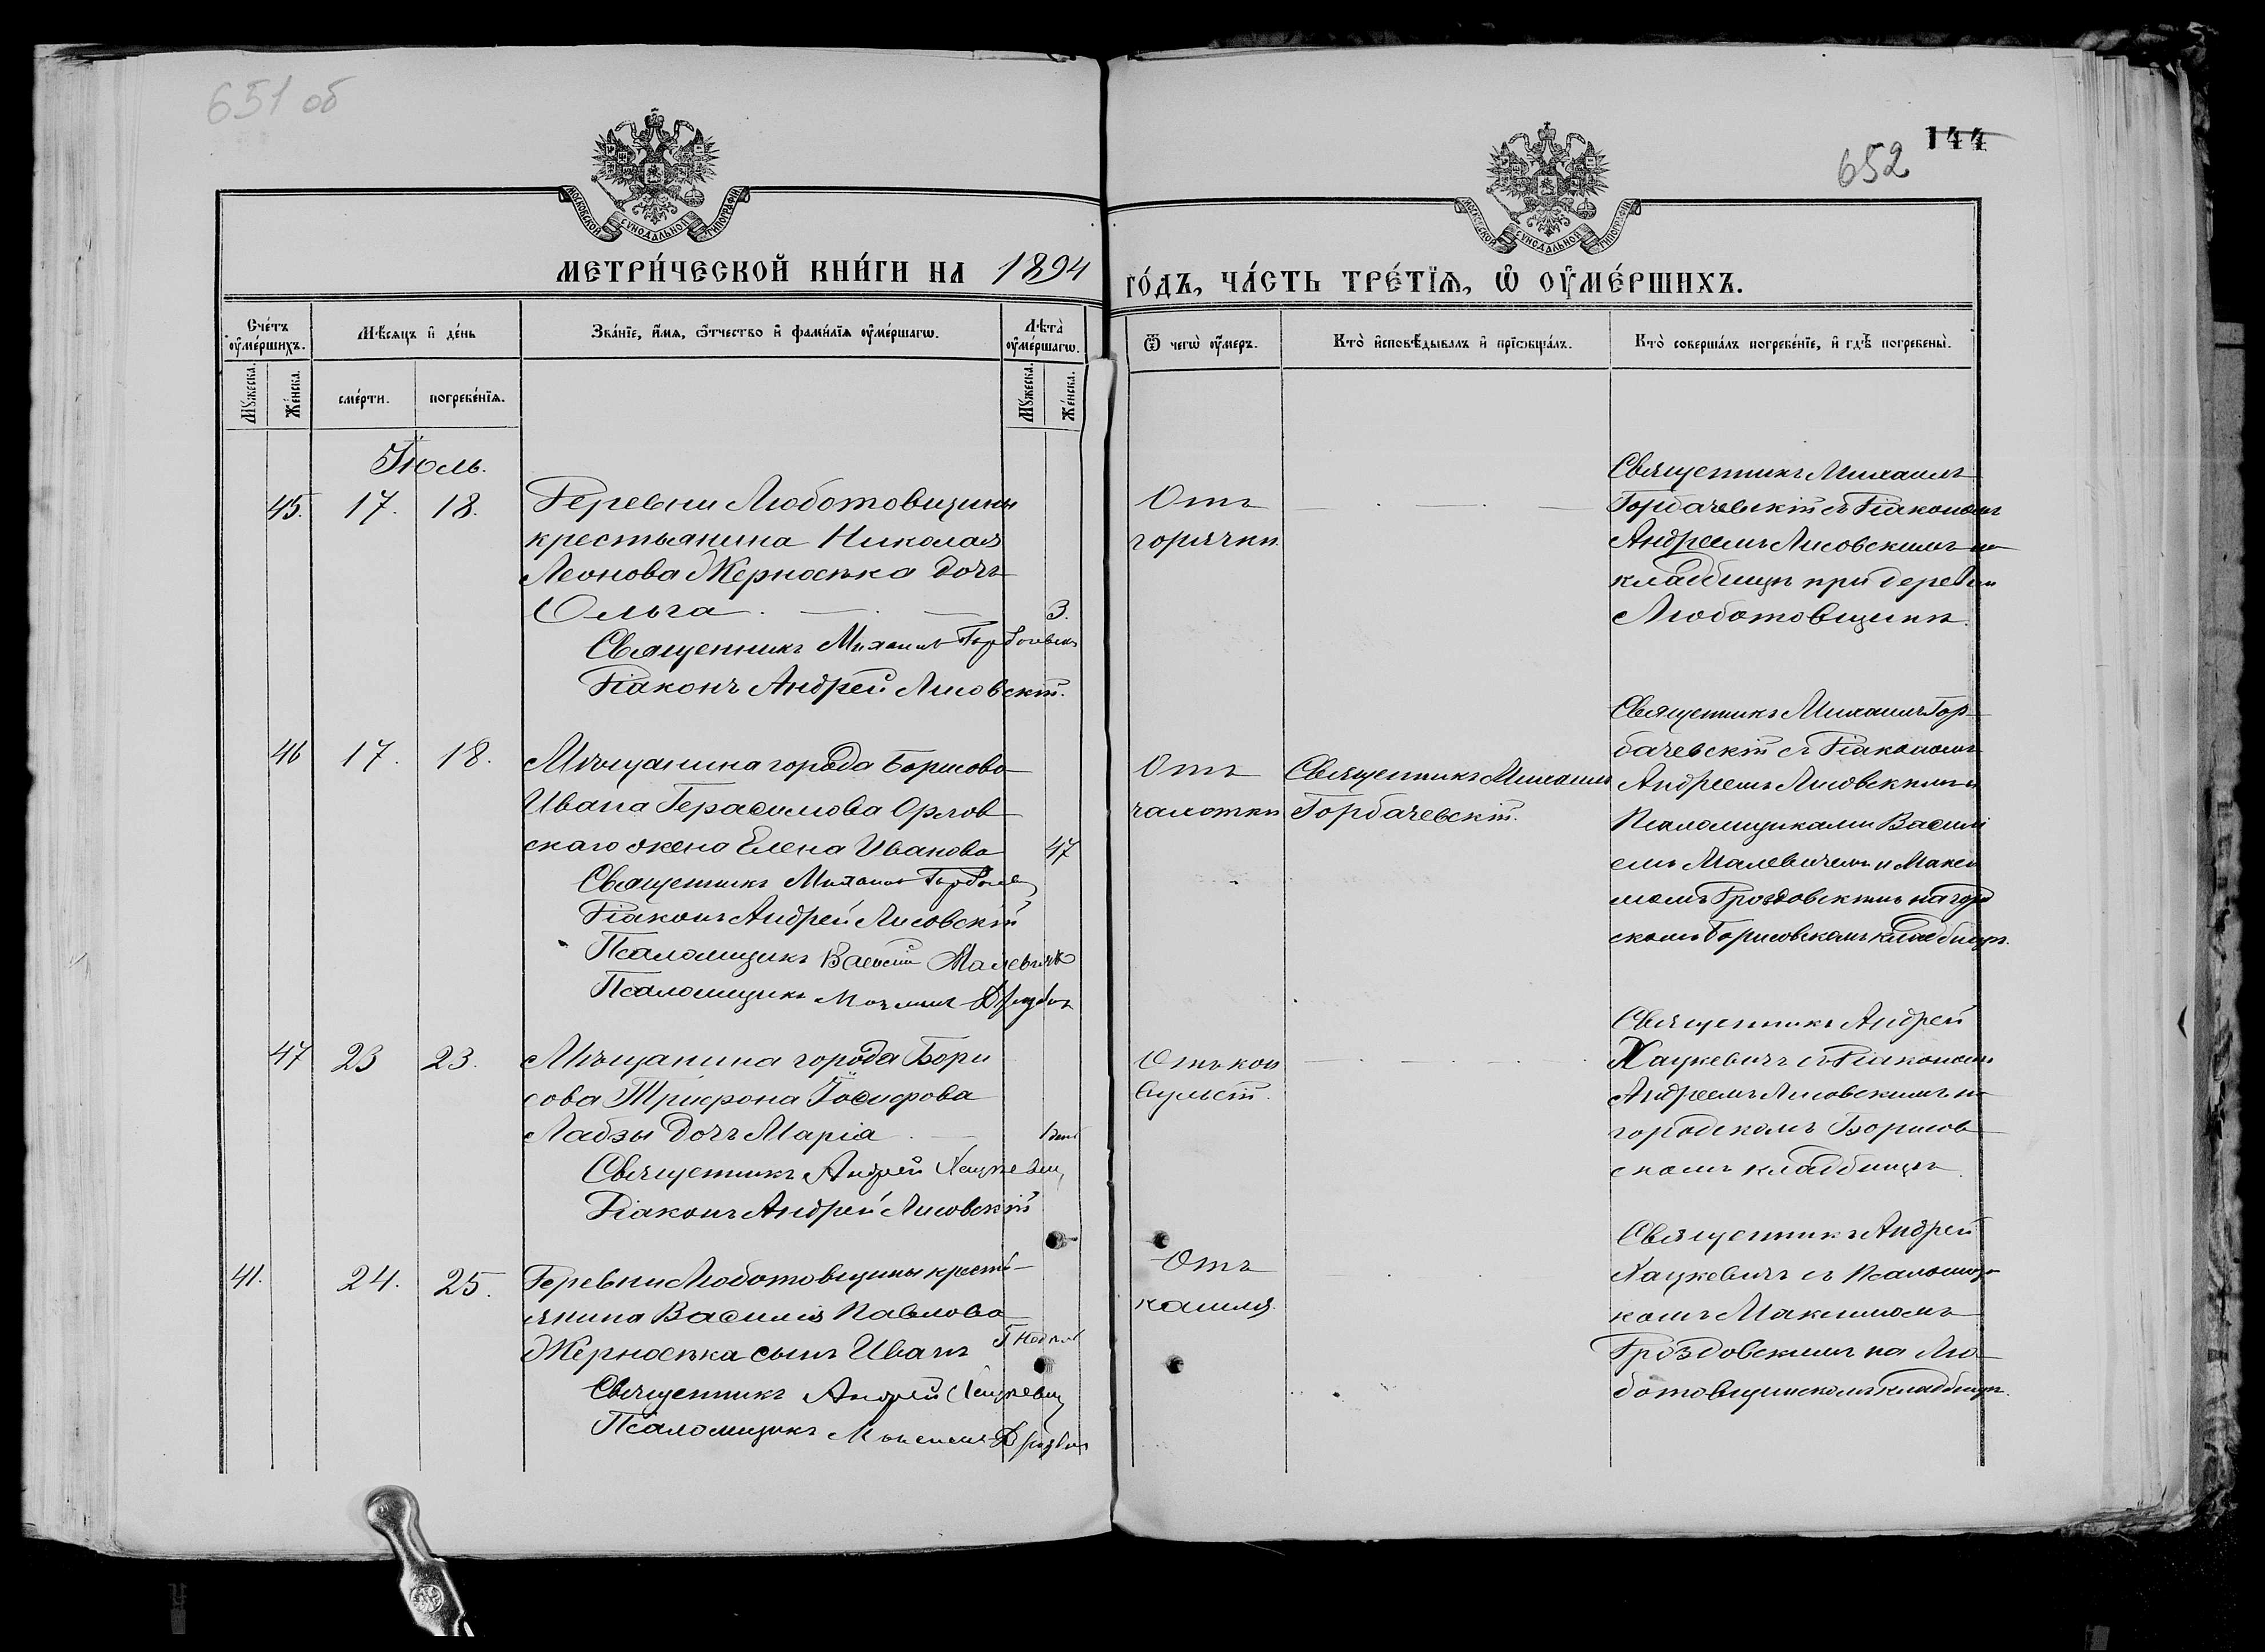 651 об
652
144
МОСКОВСКОЙ СѴНОДАЛЬНОЙ ТИПОГРАФІИ
МОСКОВСКОЙ СѴНОДАЛЬНОЙ ТИПОГРАФІИ
МЕТРИ́ЧЕСКОЙ КНИ́ГИ НА 1894
ГО́ДЪ, ЧА́СТЬ ТРЕ́ТЇѦ, Ѡ҆ ОУ҆МЕ́РШИХЪ.
Сче́тъ оу҆ме́ршихъ.
Мꙋ́жеска.
Же́нска.
Мѣ́сѧцъ и҆ де́нь
сме́рти.
погребе́нїѧ.
Зва́нїе, и҆́мѧ, ѻ҆́тчество и҆ фами́лїѧ оу҆ме́ршагѡ.
Лѣ́та оу҆ме́ршагѡ.
Мꙋ́жеска.
Же́нска.
Ѿ чегѡ̀ оу҆́меръ.
Кто̀ и҆сповѣ́дывалъ и҆ прїѻбща́лъ.
Кто̀ соверша́лъ погребе́нїе, и҆ гдѣ̀ погребены̀.
Іюль.
45. 17. 18.
Деревни Люботовщины
крестьянина Николая
Леонова Жерносѣка дочь
Ольга 3.
Священникъ Михаилъ Горбачевскій
Діаконъ Андрей Лисовскій.
Отъ
горячки.
Священникъ Михаилъ
Горбачевскій съ Діакономъ
Андреемъ Лисовскимъ на
кладбищѣ при деревни
Люботовщинѣ.
46 17. 18.
Мѣщанина города Борисова
Ивана Герасимова Орлов
скаго жена Елена Иванова 47
Священникъ Михаилъ
Діаконъ Андрей Лисовскій
Псаломщикъ Василій Малевичъ
Псаломщикъ
Отъ
чахотки
Священникъ Михаилъ
Горбачевскій.
Священникъ Михаилъ Гор
бачевскій съ Діакономъ
Андреемъ Лисовскимъ и
Псаломщиками Василі
емъ Малевичемъ и Макси
момъ Дроздовскимъ на город
скомъ Борисовскомъ кладбищѣ.
47 23 23.
Мѣщанина города Бори
сова Трифона Іосифова
Лабзы дочь Марія 1 день
Священникъ Андрей Хацкевичъ
Діаконъ Андрей Лисовскій
Отъ кон
вульсій.
Священникъ Андрей
Хацкевичъ съ Діакономъ
Андреемъ Лисовскимъ на
городскомъ Борисов
скомъ кладбищѣ.
41. 24. 25.
Деревни Люботовщины кресть
янина Василія Павлова
Жерносѣка сынъ Иванъ
Священникъ Андрей Хацкевичъ
Псаломщикъ
Отъ
кашля.
Священникъ Андрей
Хацкевичъ съ Псаломщи
комъ Максимомъ
Дроздовскимъ на Лю
ботовщинскомъ кладбищѣ.